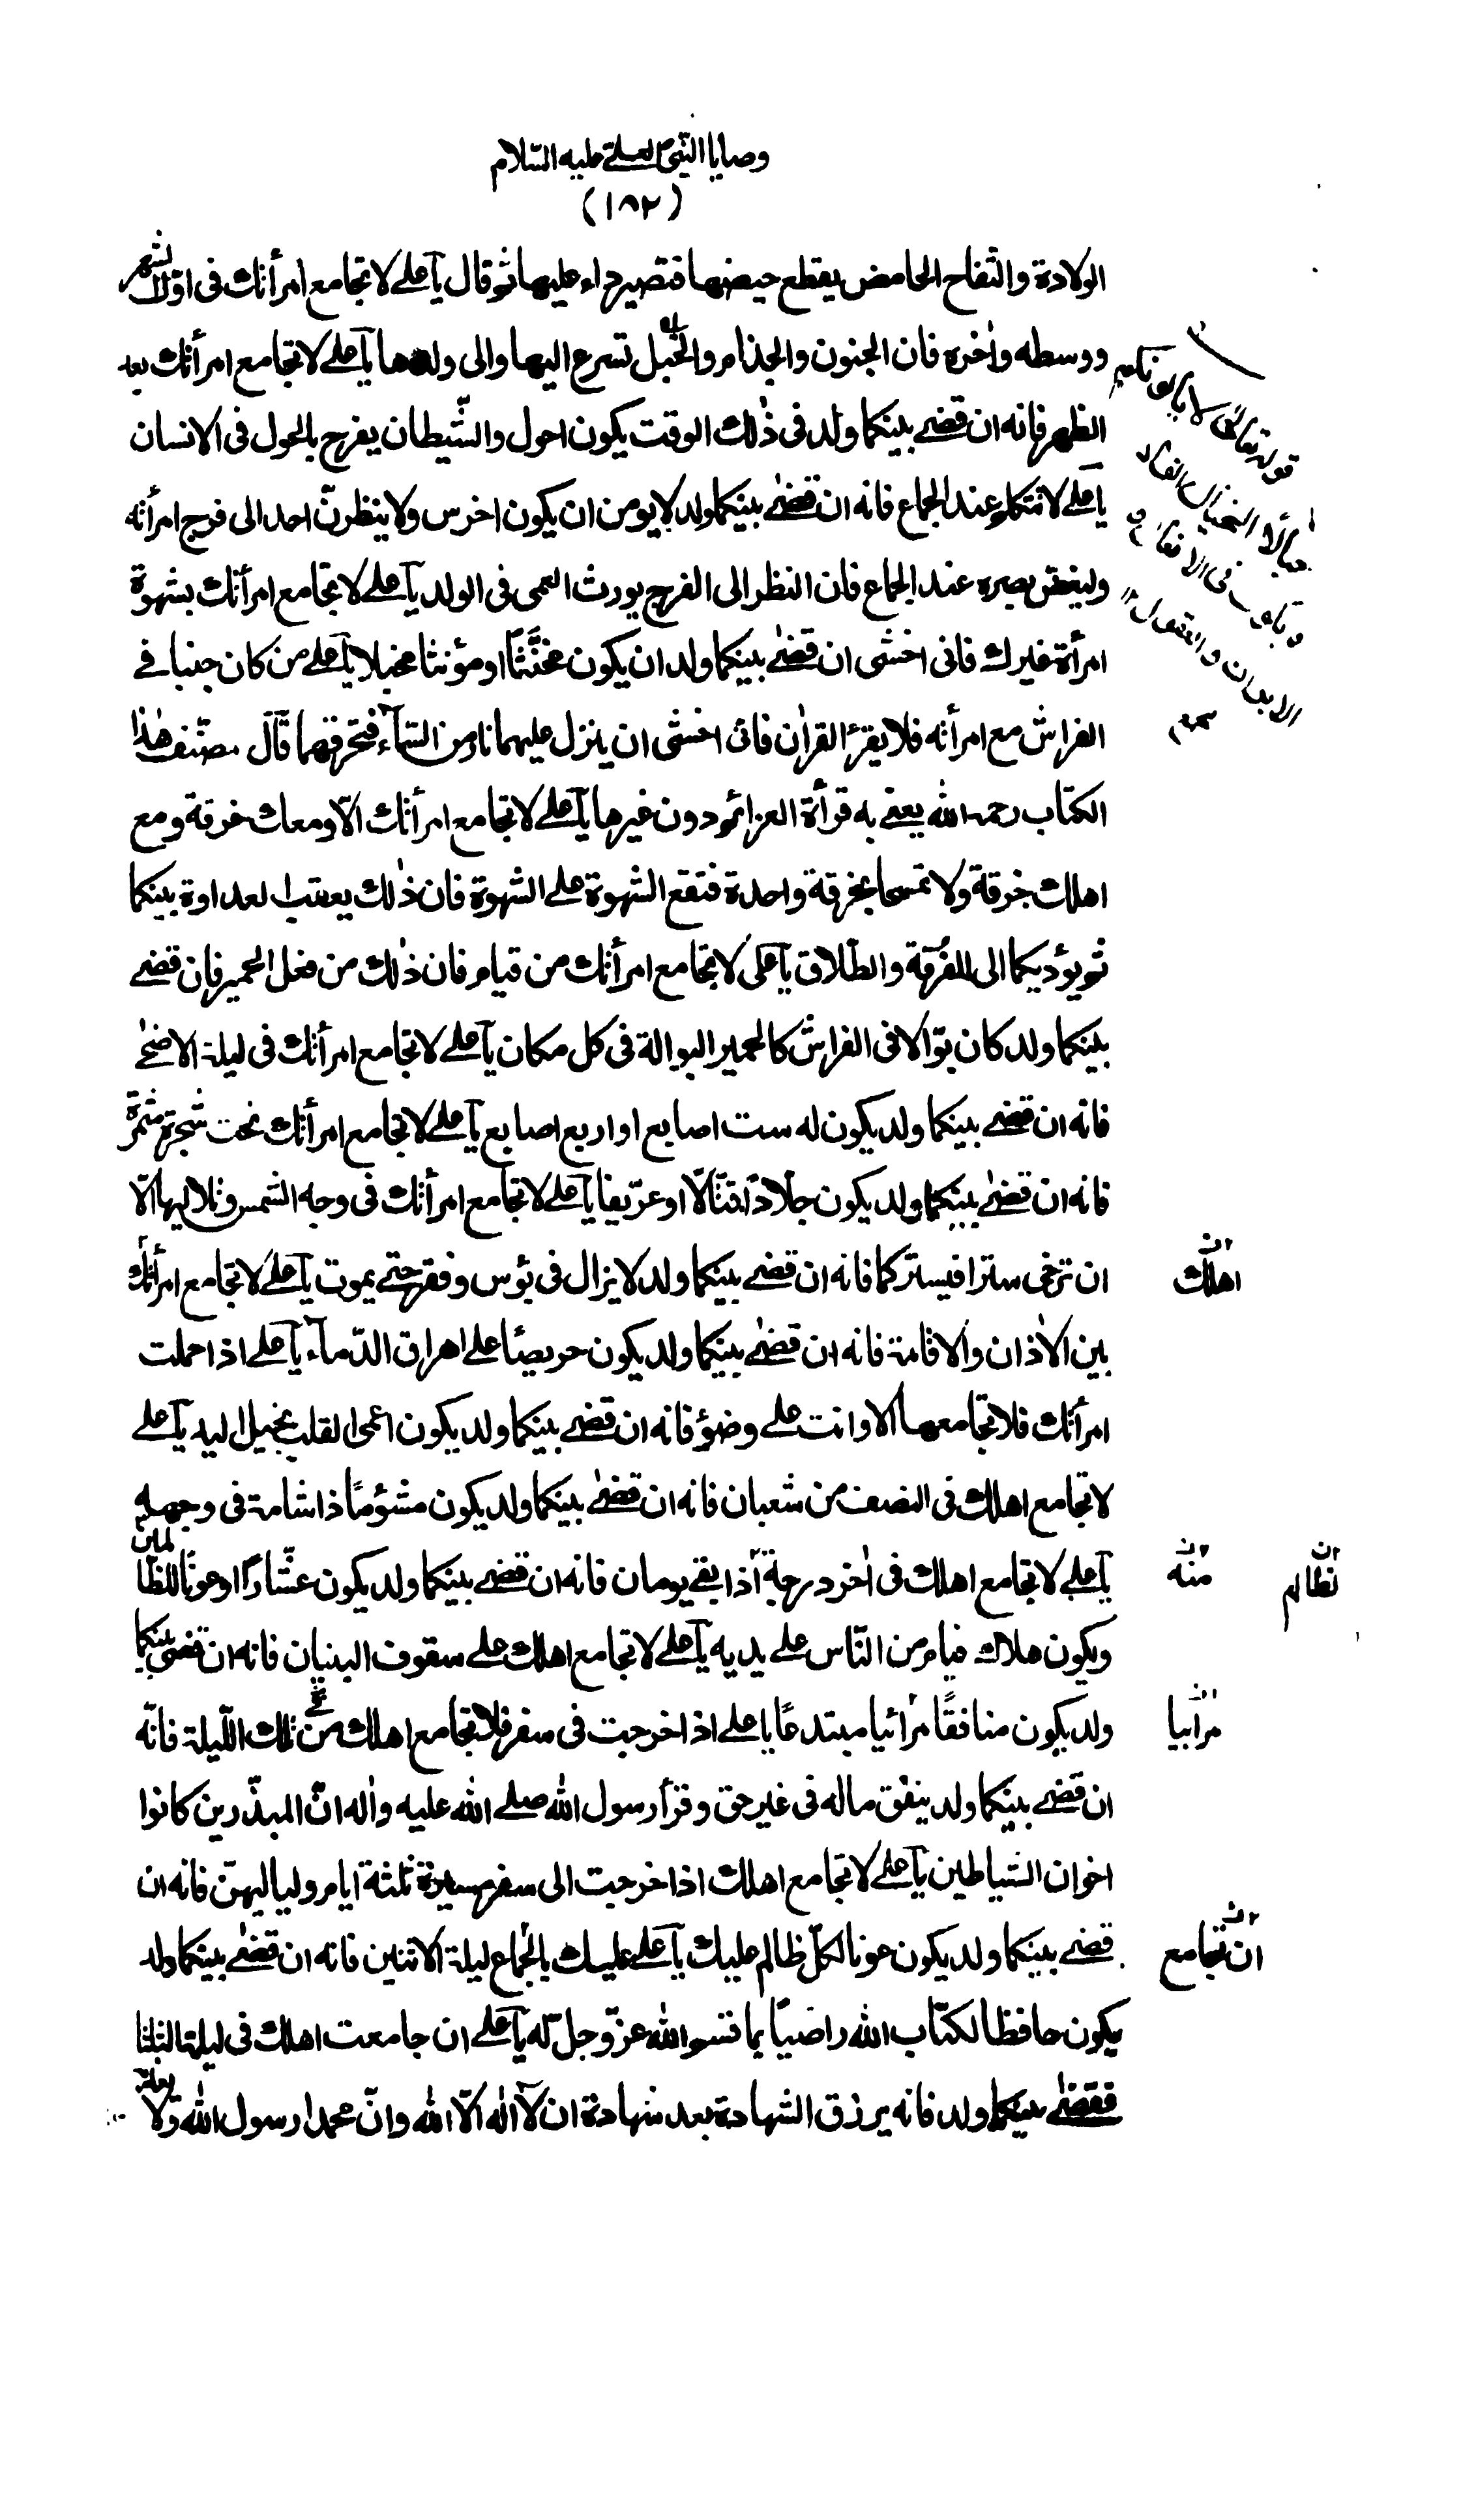 وصايا النبي لعلي عليه السلام
(١٨٢)
الولادة والتفاح الحامض يقطع حيضها فتصير داء عليها ثم قال يا علي لا تجامع امرأتك في اول الشهر
ووسطه واخره فان الجنون والجذام والخبل تسرع اليها والى ولدها يا علي لا تجامع امرأتك بعد
الظهر فانه ان قضى بينكما ولد في ذلك الوقت يكون احول والشيطان يفرح بالحول في الانسان
يا علي لا تتكلم عند الجماع فانه ان قضى بينكما ولد لا يومن ان يكون اخرس ولا ينظرنّ احد الى فرج امرأته
وليغض بصره عند الجماع فان النظر الى الفرج يورث العمى في الولد يا علي لا تجامع امرأتك بشهوة
امرأة غيرك فانى اخشى ان قضى بينكما ولد ان يكون مخنّثًا او مؤنثا مخبلا يا علي من كان جنبا في
الفراش مع امرأته فلا يقرء القران فانى اخشى ان ينزل عليهما نار من السّماء فتحرقهما قال مصنف هذا
الكتاب رحمه الله يعنى به قرأة العزائم دون غيرها يا علي لا تجامع امرأتك الّا ومعك خرقة ومع
اهلك خرقة ولا تمسحا بخرقة واحدة فتقع الشهوة على الشهوة فان ذلك يعقب العداوة بينكما
ثم يؤديكما الى الفرقة والطّلاق يا على لا تجامع امرأتك من قيام فان ذلك من فعل الحمير فان قضى
بينكما ولد كان بوّالا في الفراش كالحمير البوالة في كل مكان يا علي لا تجامع امرأتك في ليلة الاضحى
فانه ان قضى بينكما ولد يكون له ست اصابع او اربع اصابع يا على لا تجامع امرأتك تحت شجرة مثمرة
فانه ان قضى بينكما ولد يكون جلّادًا قتّالًا او عرّيفا يا علي لا تجامع امرأتك في وجه الشمس وتلاليها الّا
ان ترخى سترا فيستركما فانه ان قضى بينكما ولد لا يزال في بؤس وفقر حتى يموت يا علي لا تجامع امرأتك
اهلك
بين الاذان والاقامة فانه ان قضى بينكما ولد يكون حريصًا على اهراق الدّماء يا علي اذا حملت
امرأتك فلا تجامعها الا وانت على وضؤ فانه ان قضى بينكما ولد يكون اعمى القلب بخيل اليد يا علي
لا تجامع اهلك في النصف من شعبان فانه ان قضى بينكما ولد يكون مشؤمًا ذا شامة في وجهه
يا علي لا تجامع اهلك في اخر درجة اذا بقى يومان فانه ان قضى بينكما ولد يكون عشّارًا او عونًا للظالمين
منه
لظالم
ويكون هلاك فيام من النّاس على يديه يا علي لا تجامع اهلك على سقوف البنيان فانه ان قضى بينكما
ولد يكون منافقًا مرائيا مبتدعًا يا علي اذا خرجت في سفر فلا تجامع اهلك من تلك اللّيلة فانّه
مرابيا
ان قضى بينكما ولد ينفق ماله في غير حق وقرأ رسول الله صلى الله عليه واله انّ المبذّرين كانوا
اخوان الشّياطين يا علي لا تجامع اهلك اذا خرجت الى سفر مسيرة ثلثة ايام ولياليهنّ فانه ان
قضى بينكما ولد يكون عونا لكلّ ظالم عليك يا علي عليك بالجماع ليلة الاثنين فانه ان قضى بينكما ولد
ان تجامع
يكون حافظا لكتاب الله راضيًا بما قسم الله عز وجل له يا علي ان جامعت اهلك في ليلة الثلثا
فقضى بينكما ولد فانه يرزق الشهادة بعد شهادة ان لا اله الّا الله وانّ محمدا رسول الله ولا